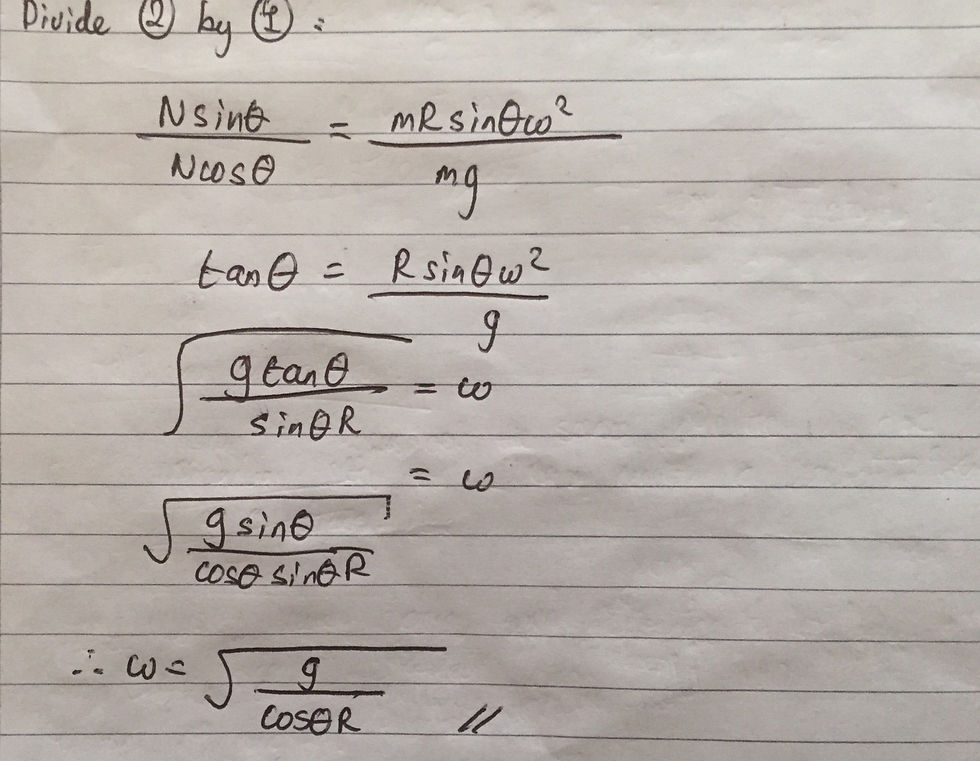 Divide ② by ①:
Nsinθ / Ncosθ = mRsinθω² / mg
tanθ = Rsinθω² / g
√(g tanθ / sinθR) = ω
√(g sinθ / cosθ sinθR) = ω
∴ ω = √(g / cosθR) //